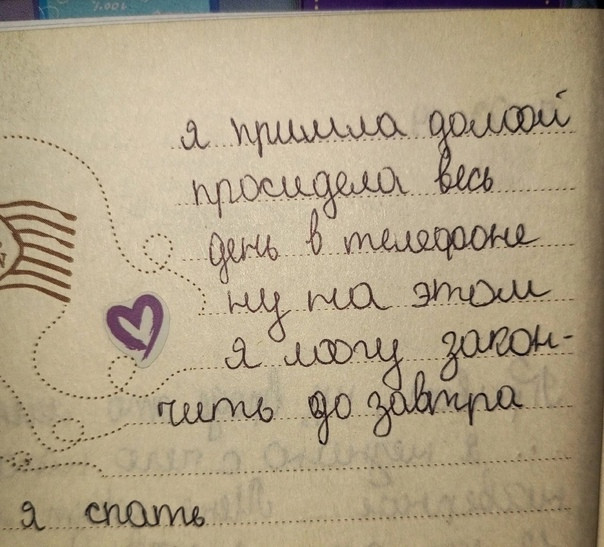 я пришла домой
просидела весь
день в телефоне
ну на этом
я могу закон-
чить до завтра
я спать